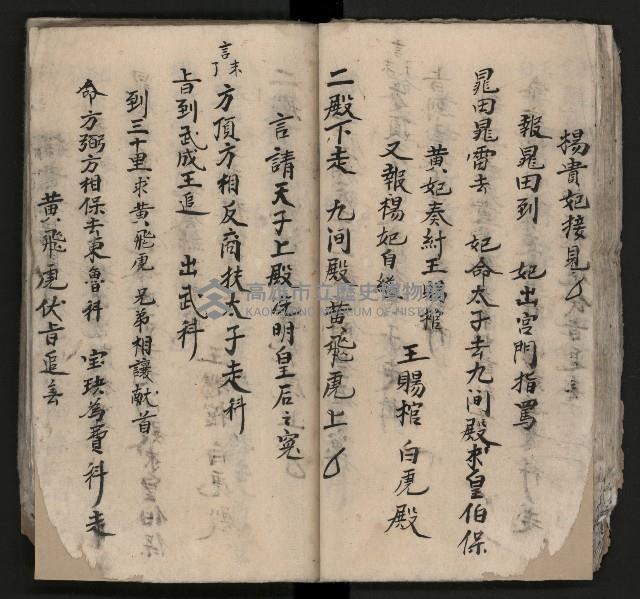 楊貴妃接見
報晁田到 妃出宮門指罵
晁田晁雷去 妃命太子去九间殿求皇伯保
黄妃奏紂王賜棺
又報楊妃自縊 王賜棺 白虎殿
二殿下走 九间殿黄飛虎上
言請天子上殿伸明皇后之寃
言未了 方頂方相反商扶太子走科
旨到武成王追 出武科
到三十里求黄飛虎 兄弟相讓献首
命方弼方相保去東魯科 宝玦為費科 走
黄飛虎伏旨追去
高雄市立歷史博物館
KAOHSIUNG MUSEUM OF HISTORY